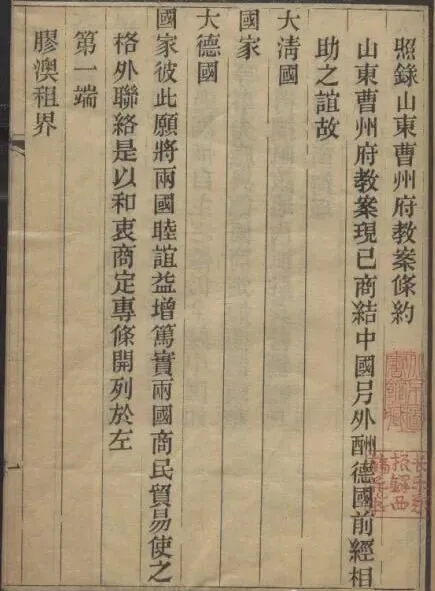 照錄山東曹州府教案條約
山東曹州府教案現已商結中國另外酬德國前經相
助之誼故
大清國
國家
大德國
國家彼此願將兩國睦誼益增篤實兩國商民貿易使之
格外聯絡是以和衷商定專條開列於左
第一端
膠澳租界
一